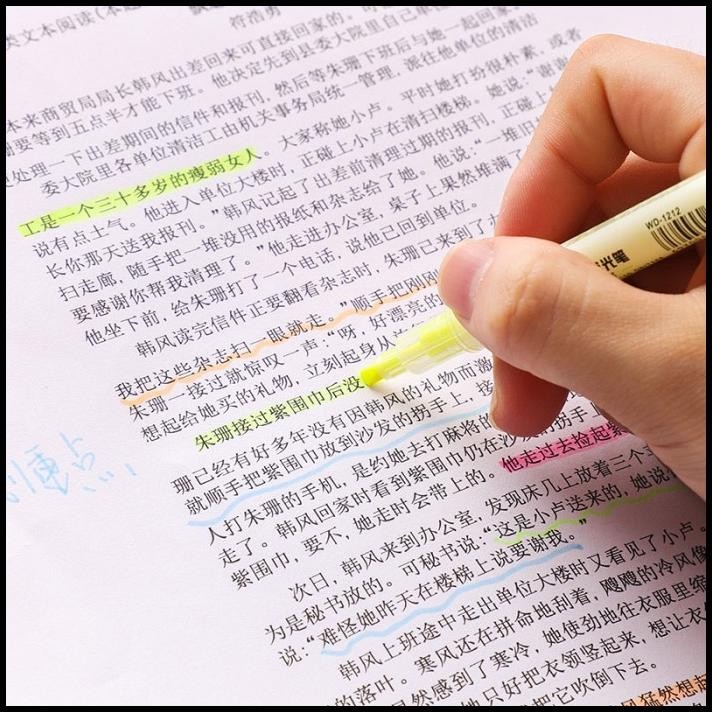 类文本阅读(本题
符浩勇
本来商贸局局长韩风出差回来可直接回家的。可
要等到五点半才能下班。他决定先到县委大院里自己单位
处理一下出差期间的信件和报刊，然后等朱珊下班后与她一起回家。
委大院里各单位清洁工由机关事务局统一管理，派往他单位的清洁
工是一个三十多岁的瘦弱女人。大家称她小卢。平时她打扮很朴素，或者
说有点土气。他进入单位大楼时，正碰上小卢在清扫楼梯。她说：“谢谢
长你那天送我报刊。”韩风记起了出差前清理过期的报刊，正碰上
扫走廊，随手把一堆没用的报纸和杂志给了她。他说：“一堆旧
要感谢你帮我清理了。”他走进办公室，桌子上果然堆满了
他坐下前，给朱珊打了一个电话，说他已回到单位。
韩风读完信件正要翻看杂志时，朱珊已来到了
我把这些杂志扫一眼就走。”顺手把刚刚
朱珊一接过就惊叹一声：“呀，好漂亮的
想起给她买的礼物，立刻起身从
朱珊接过紫围巾后没
珊已经有好多年没有因韩风的礼物而激
就顺手把紫围巾放到沙发的拐手上，接
人打朱珊的手机，是约她去打麻将的
走了。韩风回家时看到紫围巾仍在沙发的拐手上
紫围巾，要不，她走时会带上的。他走过去捡起紫
次日，韩风来到办公室，发现床几上放着三个
为是秘书放的。可秘书说：“这是小卢送来的，她说
说：“难怪她昨天在楼梯上说要谢我。”
韩风上班途中走出单位大楼时又看见了小卢。
的落叶。寒风还在拼命地刮着，飕飕的冷风像
然感到了寒冷，她使劲地往衣服里缩
她只好把衣领竖起来，想让衣
把它吹倒下去。
风猛然想起
重点
WD-1212
光笔